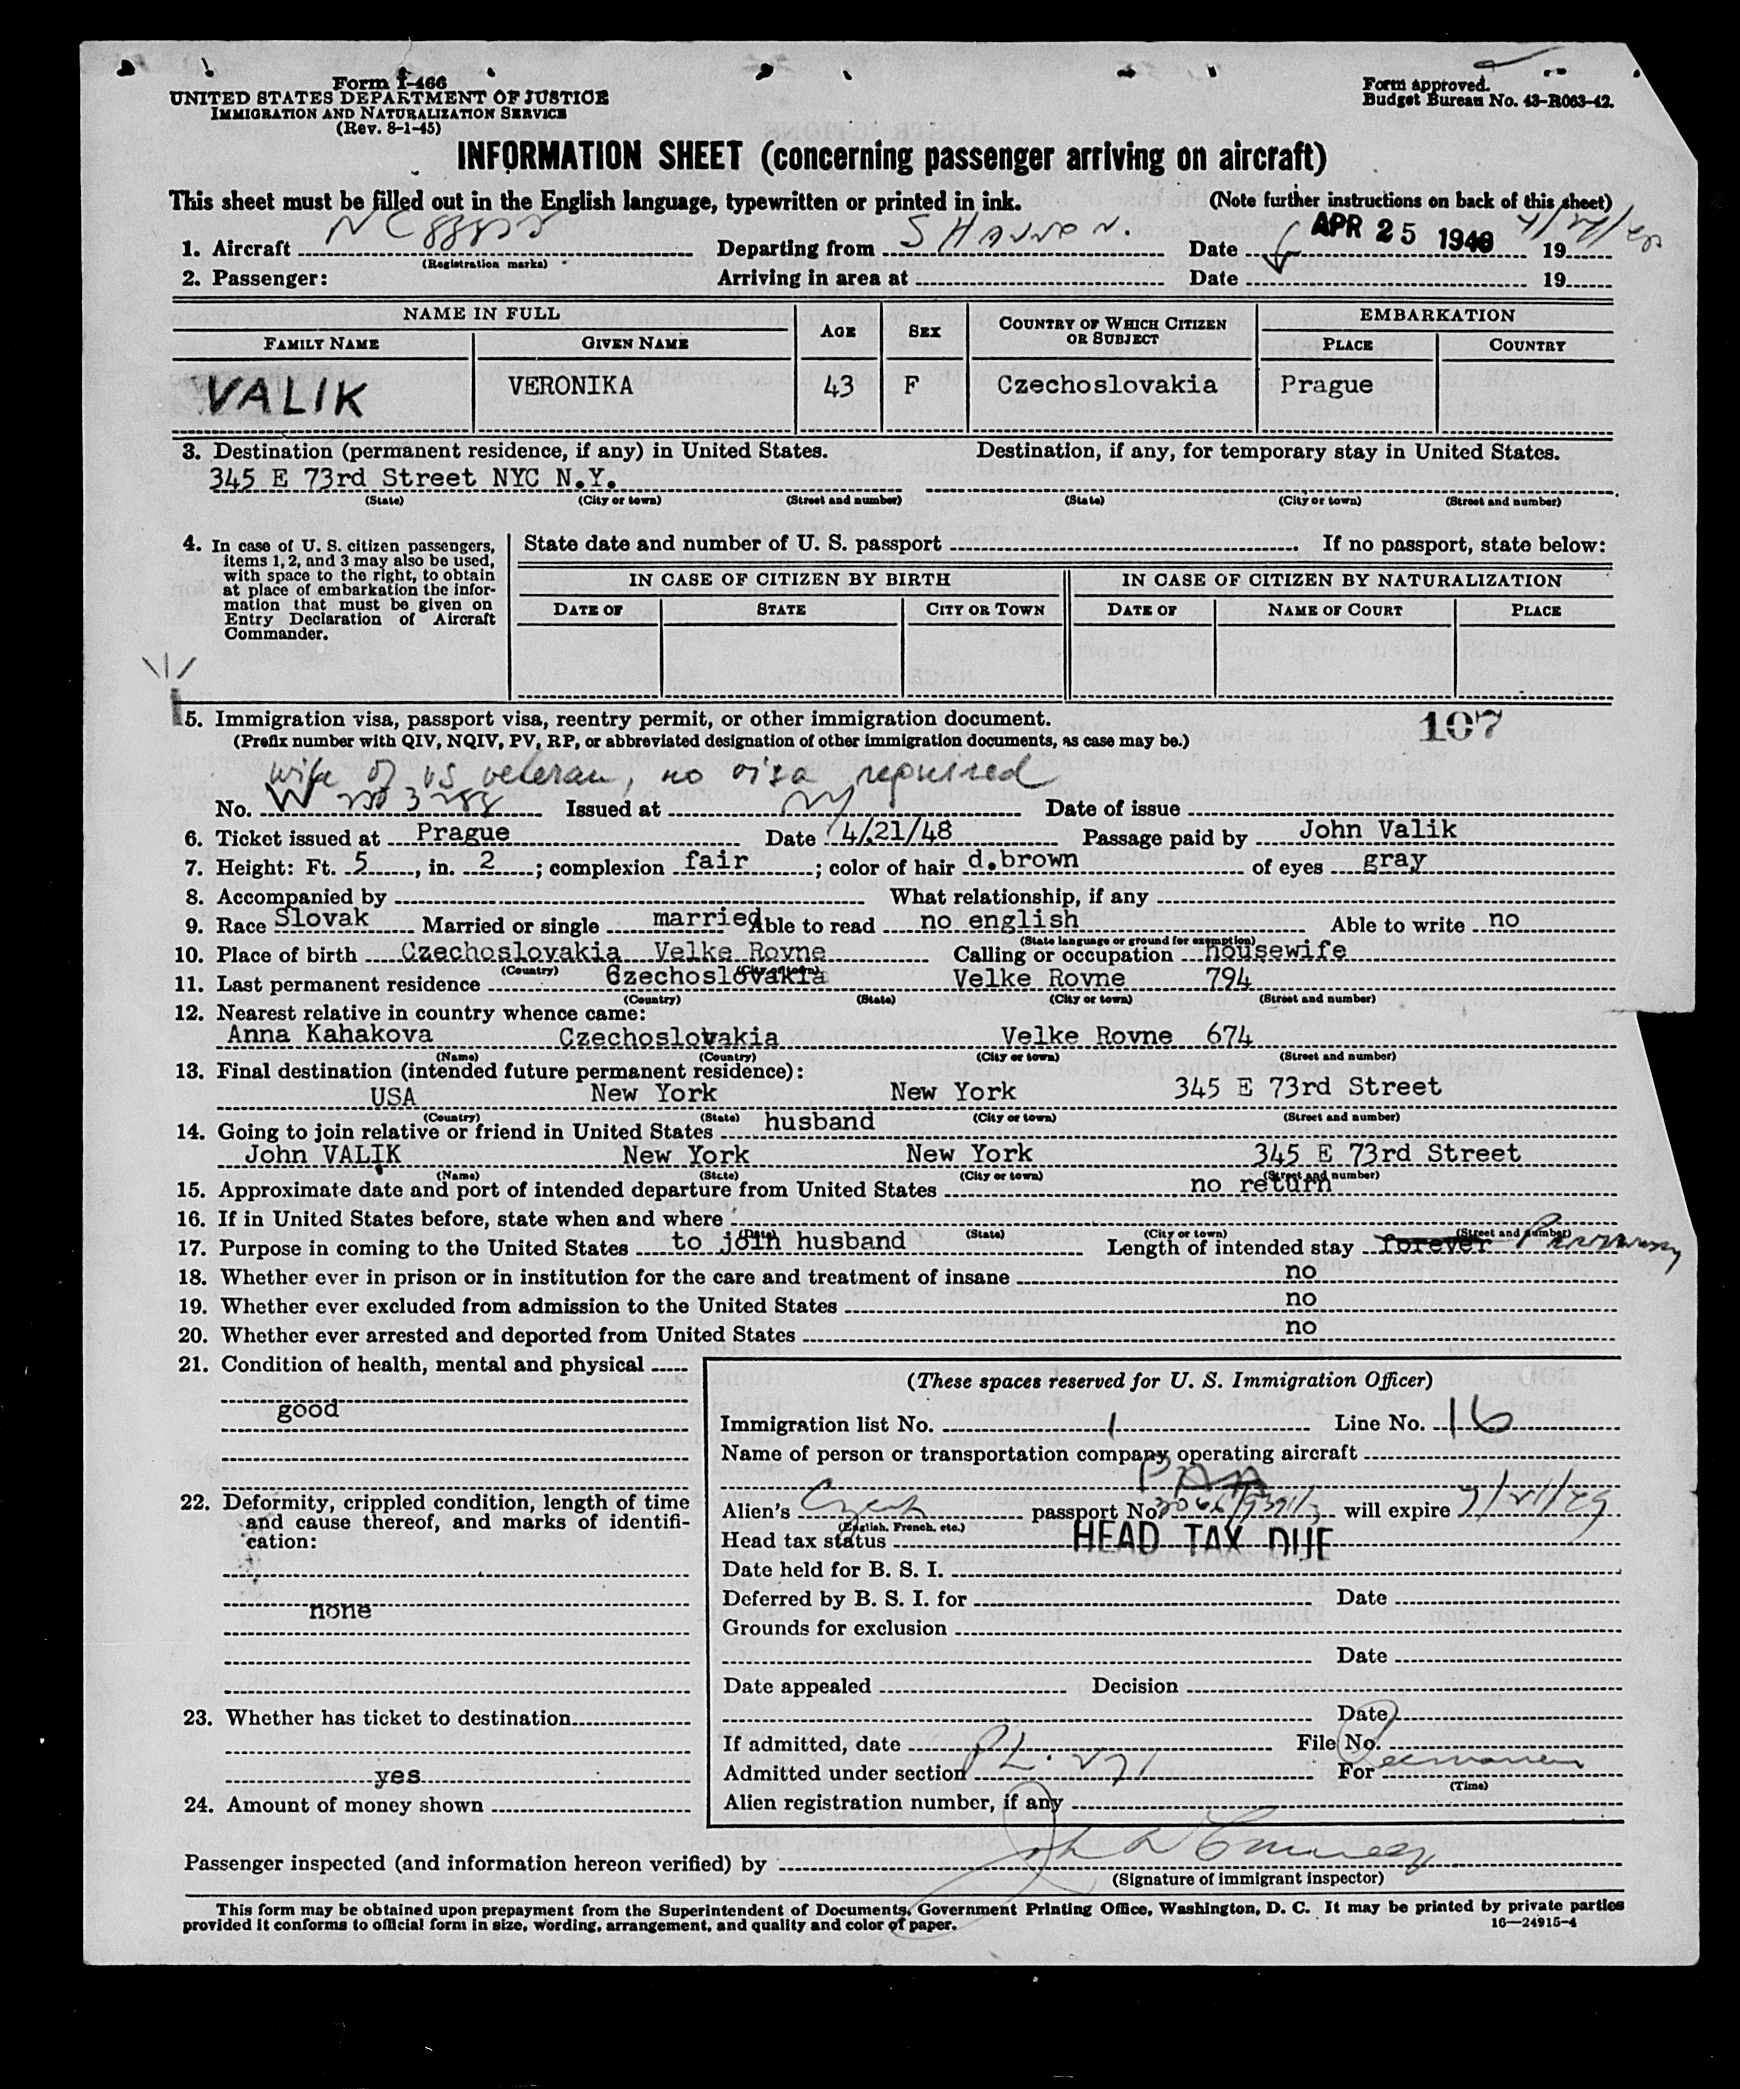 Form I-466
UNITED STATES DEPARTMENT OF JUSTICE
IMMIGRATION AND NATURALIZATION SERVICE
(Rev. 8-1-45)
Form approved.
Budget Bureau No. 43-R063-42.
INFORMATION SHEET (concerning passenger arriving on aircraft)
This sheet must be filled out in the English language, typewritten or printed in ink. (Note further instructions on back of this sheet)
1. Aircraft Departing from SHANNON. Date APR 25 1948 19
(Registration marks)
2. Passenger: Arriving in area at Date 19
NAME IN FULL AGE SEX COUNTRY OF WHICH CITIZEN OR SUBJECT EMBARKATION
FAMILY NAME GIVEN NAME PLACE COUNTRY
VALIK VERONIKA 43 F Czechoslovakia Prague
3. Destination (permanent residence, if any) in United States. Destination, if any, for temporary stay in United States.
345 E 73rd Street NYC N.Y.
(State) (City or town) (Street and number) (State) (City or town) (Street and number)
4. In case of U. S. citizen passengers, items 1, 2, and 3 may also be used, with space to the right, to obtain at place of embarkation the information that must be given on Entry Declaration of Aircraft Commander.
State date and number of U. S. passport . If no passport, state below:
IN CASE OF CITIZEN BY BIRTH IN CASE OF CITIZEN BY NATURALIZATION
DATE OF STATE CITY OR TOWN DATE OF NAME OF COURT PLACE
5. Immigration visa, passport visa, reentry permit, or other immigration document. 107
(Prefix number with QIV, NQIV, PV, RP, or abbreviated designation of other immigration documents, as case may be.)
wife of US veteran, no visa required
No. Issued at NY Date of issue
6. Ticket issued at Prague Date 4/21/48 Passage paid by John Valik
7. Height: Ft. 5, in. 2; complexion fair; color of hair d.brown of eyes gray
8. Accompanied by What relationship, if any
9. Race Slovak Married or single married Able to read no english Able to write no
(State language or ground for exemption)
10. Place of birth Czechoslovakia Velke Rovne Calling or occupation housewife
(Country) (City or town)
11. Last permanent residence Czechoslovakia Velke Rovne 794
(Country) (State) (City or town) (Street and number)
12. Nearest relative in country whence came:
Anna Kahakova Czechoslovakia Velke Rovne 674
(Name) (Country) (City or town) (Street and number)
13. Final destination (intended future permanent residence):
USA New York New York 345 E 73rd Street
(Country) (State) (City or town) (Street and number)
14. Going to join relative or friend in United States husband
John VALIK New York New York 345 E 73rd Street
(Name) (State) (City or town) (Street and number)
15. Approximate date and port of intended departure from United States no return
16. If in United States before, state when and where
(Date) (State) (City or town) (Street and number)
17. Purpose in coming to the United States to join husband Length of intended stay forever
18. Whether ever in prison or in institution for the care and treatment of insane no
19. Whether ever excluded from admission to the United States no
20. Whether ever arrested and deported from United States no
21. Condition of health, mental and physical
good
22. Deformity, crippled condition, length of time and cause thereof, and marks of identification:
none
23. Whether has ticket to destination
yes
24. Amount of money shown
(These spaces reserved for U. S. Immigration Officer)
Immigration list No. 1 Line No. 16
Name of person or transportation company operating aircraft
PAA
Alien's Czech passport No. will expire
(English, French, etc.)
Head tax status HEAD TAX DUE
Date held for B. S. I.
Deferred by B. S. I. for Date
Grounds for exclusion
Date
Date appealed Decision
Date
If admitted, date File No.
Admitted under section PL. 271 For
(Time)
Alien registration number, if any
Passenger inspected (and information hereon verified) by
(Signature of immigrant inspector)
This form may be obtained upon prepayment from the Superintendent of Documents, Government Printing Office, Washington, D. C. It may be printed by private parties
provided it conforms to official form in size, wording, arrangement, and quality and color of paper. 16—24915-4